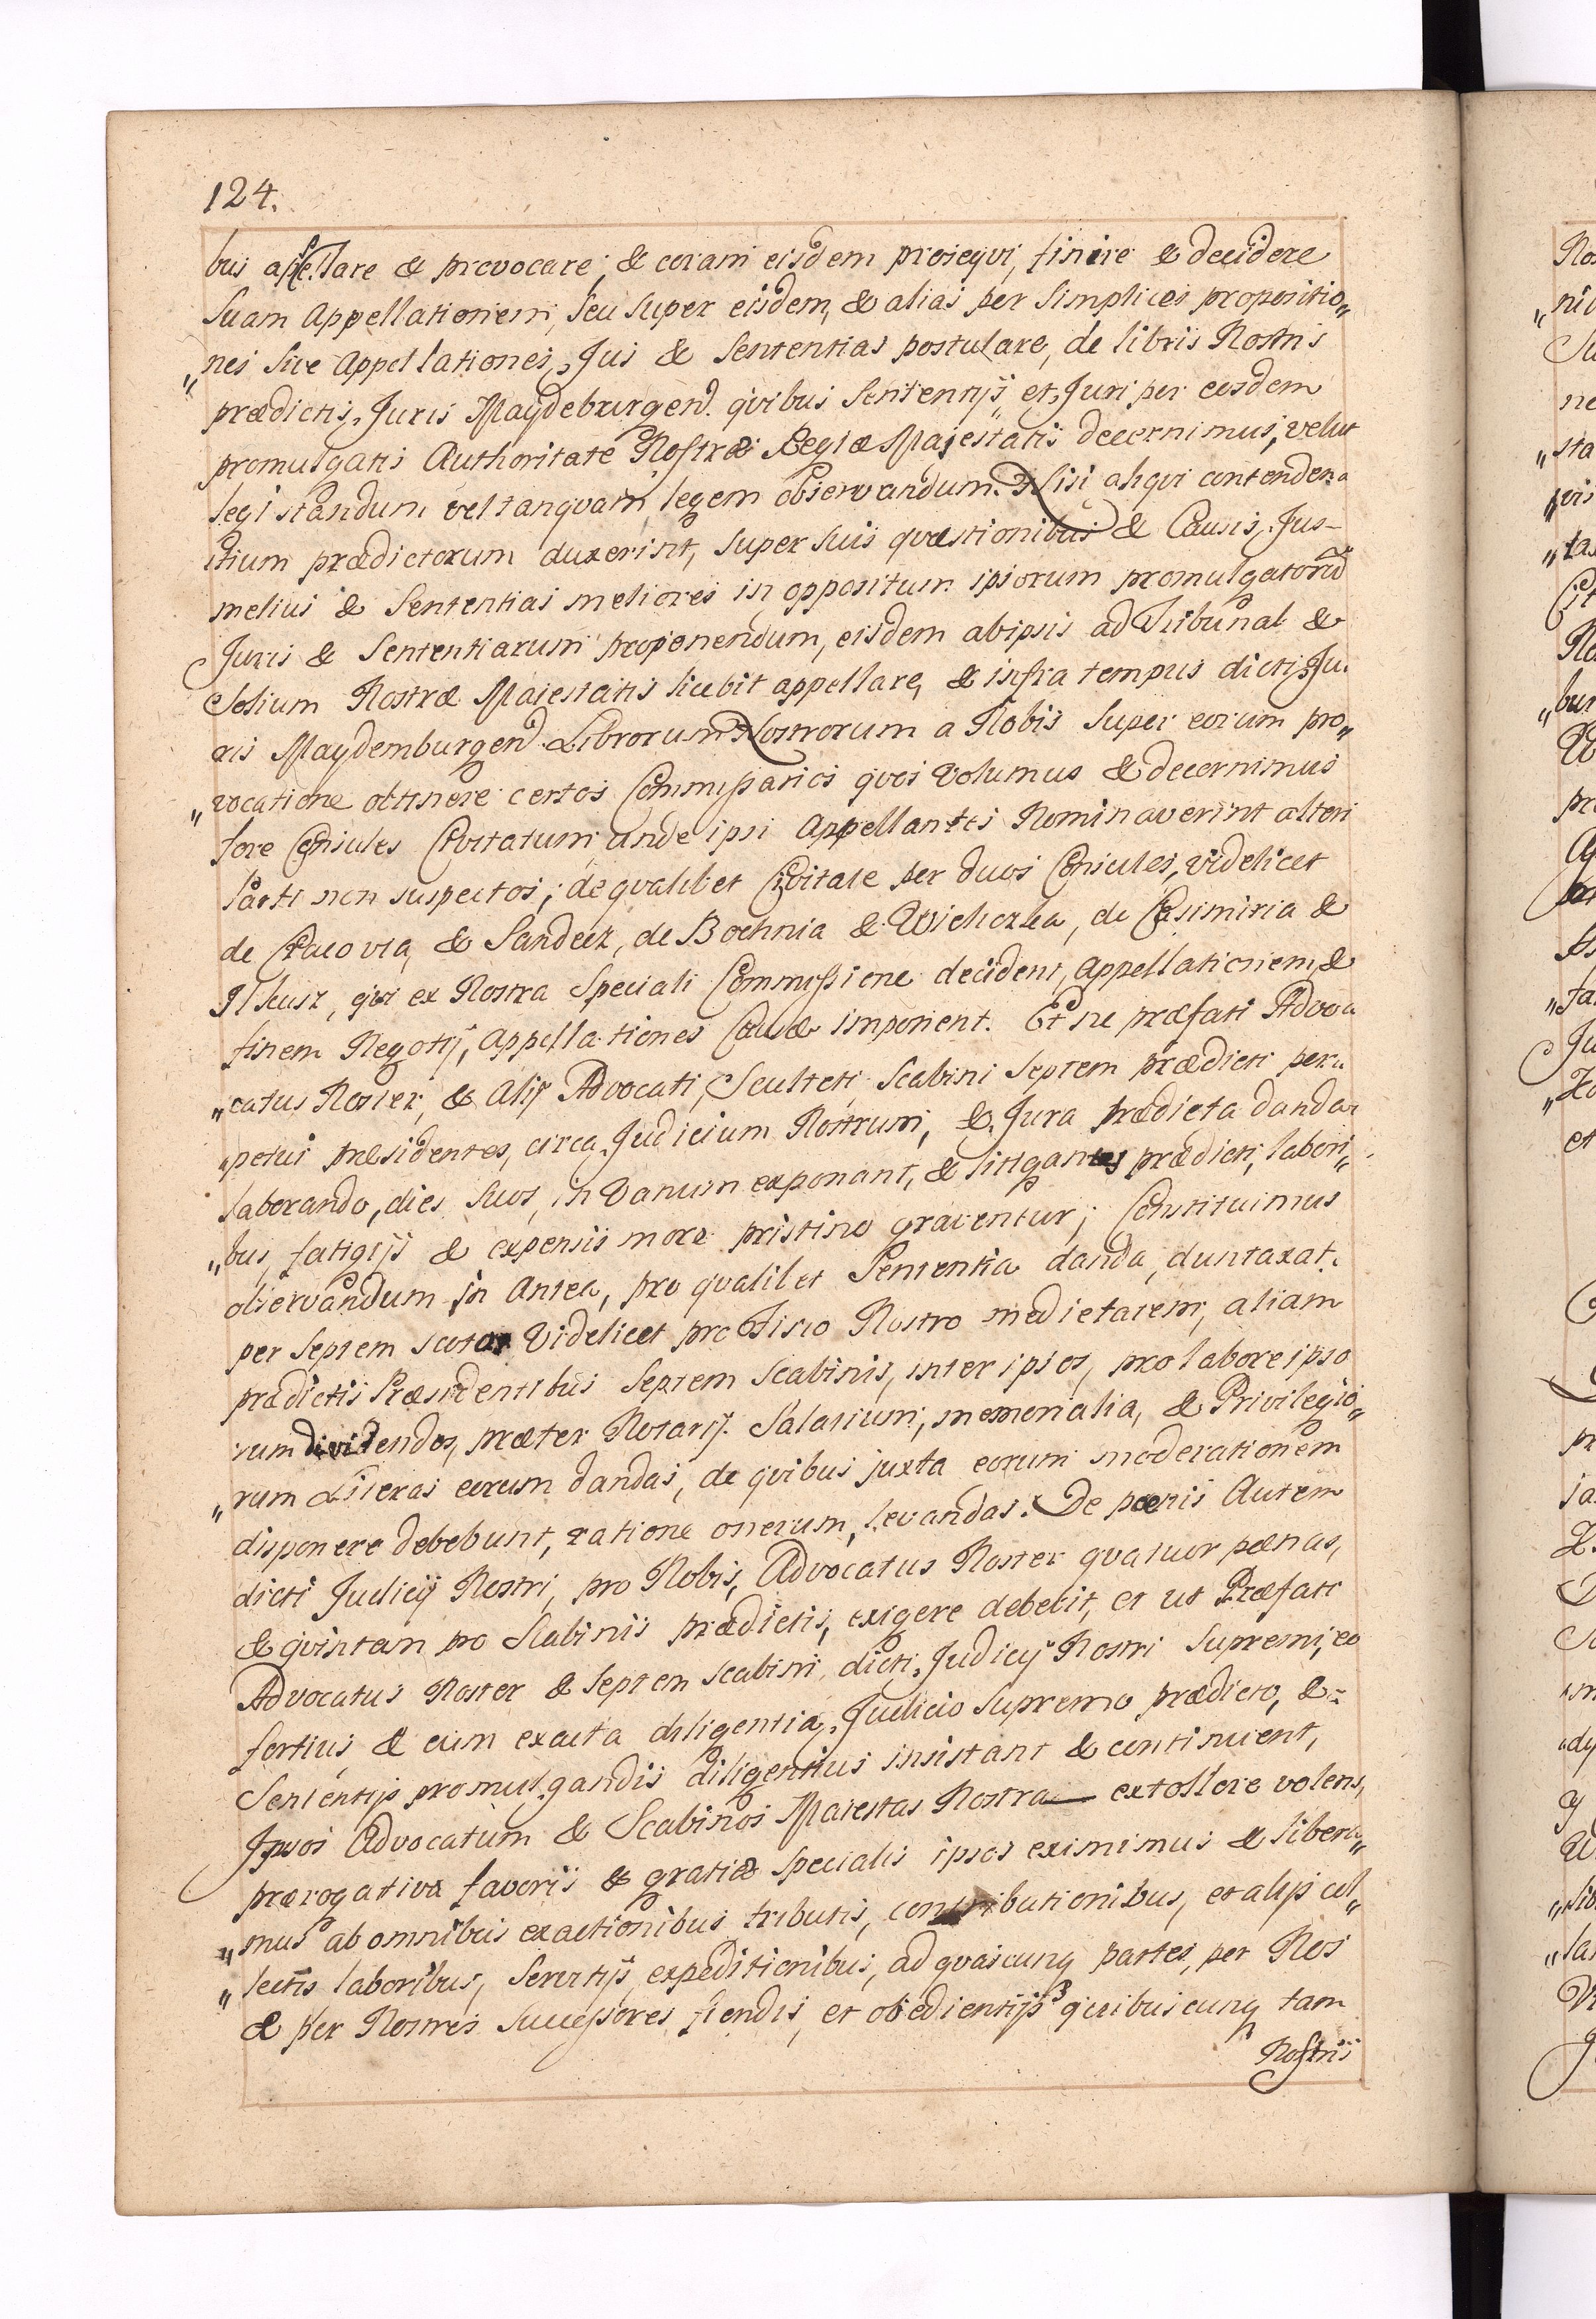 124.
bus appellare & provocare; & coram eisdem prosequi, finire & decidere
Suam Appellationem, seu super eisdem, & alias per simplices propositio„
„nes sive Appellationes, Jus & Sententias postulare, de libris Nostris
prædictis, Juris Maydeburgend. quibus Sententijs et Juri per eosdem
promulgatis Authoritate Nostræ Regiæ Majestatis decernimus, velut
legi standum vel tanquam legem observandum. Nisi aliqui contenden„
tium prædictorum duxerint, super suis quæstionibus & Causis, Jus–
melius & Sententias meliores in oppositum ipsorum promulgatorũ
Juris & Sententiarum proponendum, eisdem ab ipsis ad Tribunal &
Solium Nostræ Maiestatis licebit appellare, & infra tempus dicti Ju„
ris Maydemburgend. Librorum Nostrorum a Nobis super eorum pro„
„vocatione obtinere certos Commissarios quos Volumus & decernimus
fore Consules Civitatum unde ipsi Appellantes Nominaverint alteri
Parti non suspectos; de qualibet Civitate per duos Consules, videlicet
de Cracovia, & Sandecz, de Bochnia & Wieliczka, de Casimiria &
Ilkusz, qui ex Nostra Speciali Commissione decident, Appellationem &
finem Negotij, Appellationes Causæ imponent. Et ne præfati Advo„
„catus Noster, & Alij Advocati, Sculteti, Scabini Septem prædicti per„
„petui præsidentes, circa Judicium Nostrum, & Jura prædicta danda
laborando, dies suos, in Vanum exponant, & litigantes prædicti, labori„
„bus, fatigijs & expensis more pristino graventur; Constituimus
observandum in Antea, pro qualibet Sententia danda, duntaxat
per Septem scotos Videlicet pro Fisco Nostro medietatem, aliam
prædictis Præsidentibus Septem Scabinis, inter ipsos, pro labore ipso
rum dividendos, præter Notarij Salarium, memorialia, & Privilegio„
„rum Literas eorum dandas, de quibus juxta eorum moderationem
disponere debebunt, ratione onerum, levandas. De pœnis Autem
dicti Judicij Nostri, pro Nobis, Advocatus Noster quatuor pœnas,
& quintam pro Scabinis prædictis, exigere debebit, et ut Præfati
Advocatus Noster & Septem Scabini dicti, Judicij Nostri Supremi, eo
fortius & cum exacta diligentia, Judicio Supremo prædicto, &
Sententijs promulgandis diligentius insistant & continuent,
Ipsos Advocatum & Scabinos Maiestas Nostra extollere volens,
prærogativa favoris & gratiæ specialis ipsos eximimus & libera„
„mus ab omnibus exactionibus tributis, contributionibus, et alijs col„
„lectis laboribus, Servitijs, expeditionibus, ad quascunq partes, per Nos
& per Nostros Successores fiendis, et obedientijs quibuscunq tam
Nostris